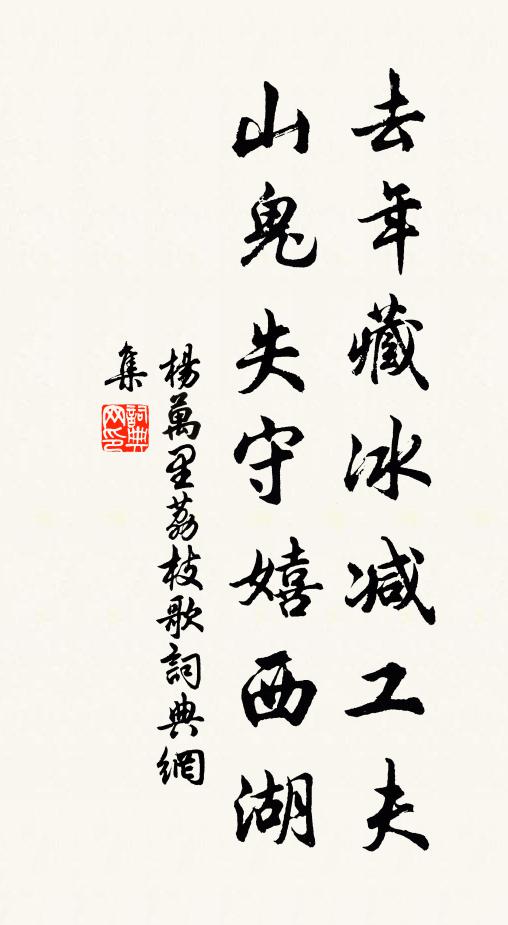 去年藏冰减工夫
山鬼失守嬉西湖
楊萬里荔枝歌詞典網
集
詞典网印